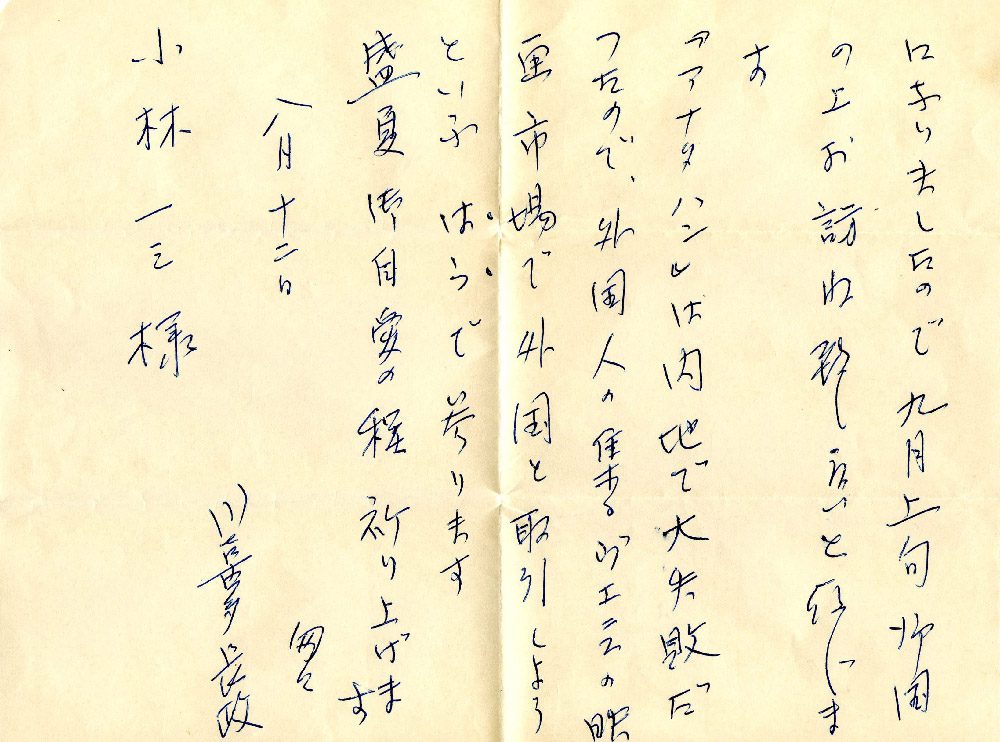 になりましたので九月上旬帰国
の上お訪ね致し度いと存じま
す
『アナタハン』は内地で大失敗だ
つたので、外国人の集まるヴェニスの映
画市場で外国と取引しよう
といふはらで参ります
盛夏御自愛の程祈り上げま
す
八月十二日 匆々
川喜多長政
小林一三様